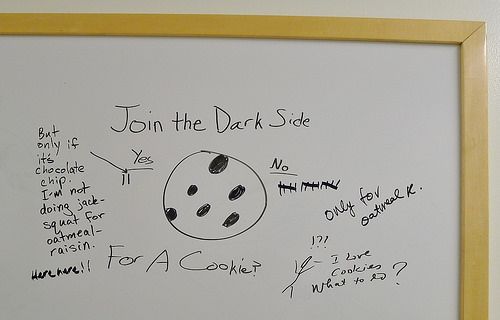 Join the Dark Side
But
only if
it's
chocolate
chip.
I'm not
doing jack-
squat for
oatmeal-
raisin.
Here here!!
Yes
No
only for
oatmeal R.
For A Cookie?
!??
I love
cookies
what to do?